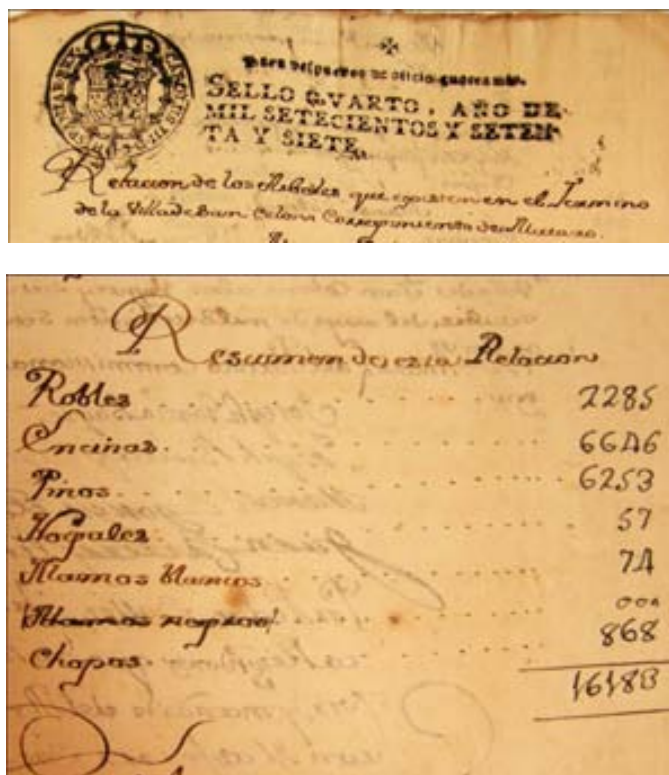 Para despachos de oficio quatro mrs.
SELLO QVARTO, AÑO DE
MIL SETECIENTOS Y SETEN
TA Y SIETE.
Relacion de los Arboles que existen en el Termino
de la Villa de San Celoni Corregimiento de Mataro.
Resumen de esta Relacion
Robles 2285
Encinas 6646
Pinos 6253
Nogales 57
Alamos blancos 74
Alamos negros 000
Chopos 868
16183